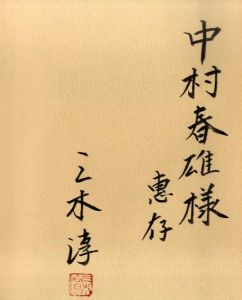 中村春雄様
惠存
三木淳